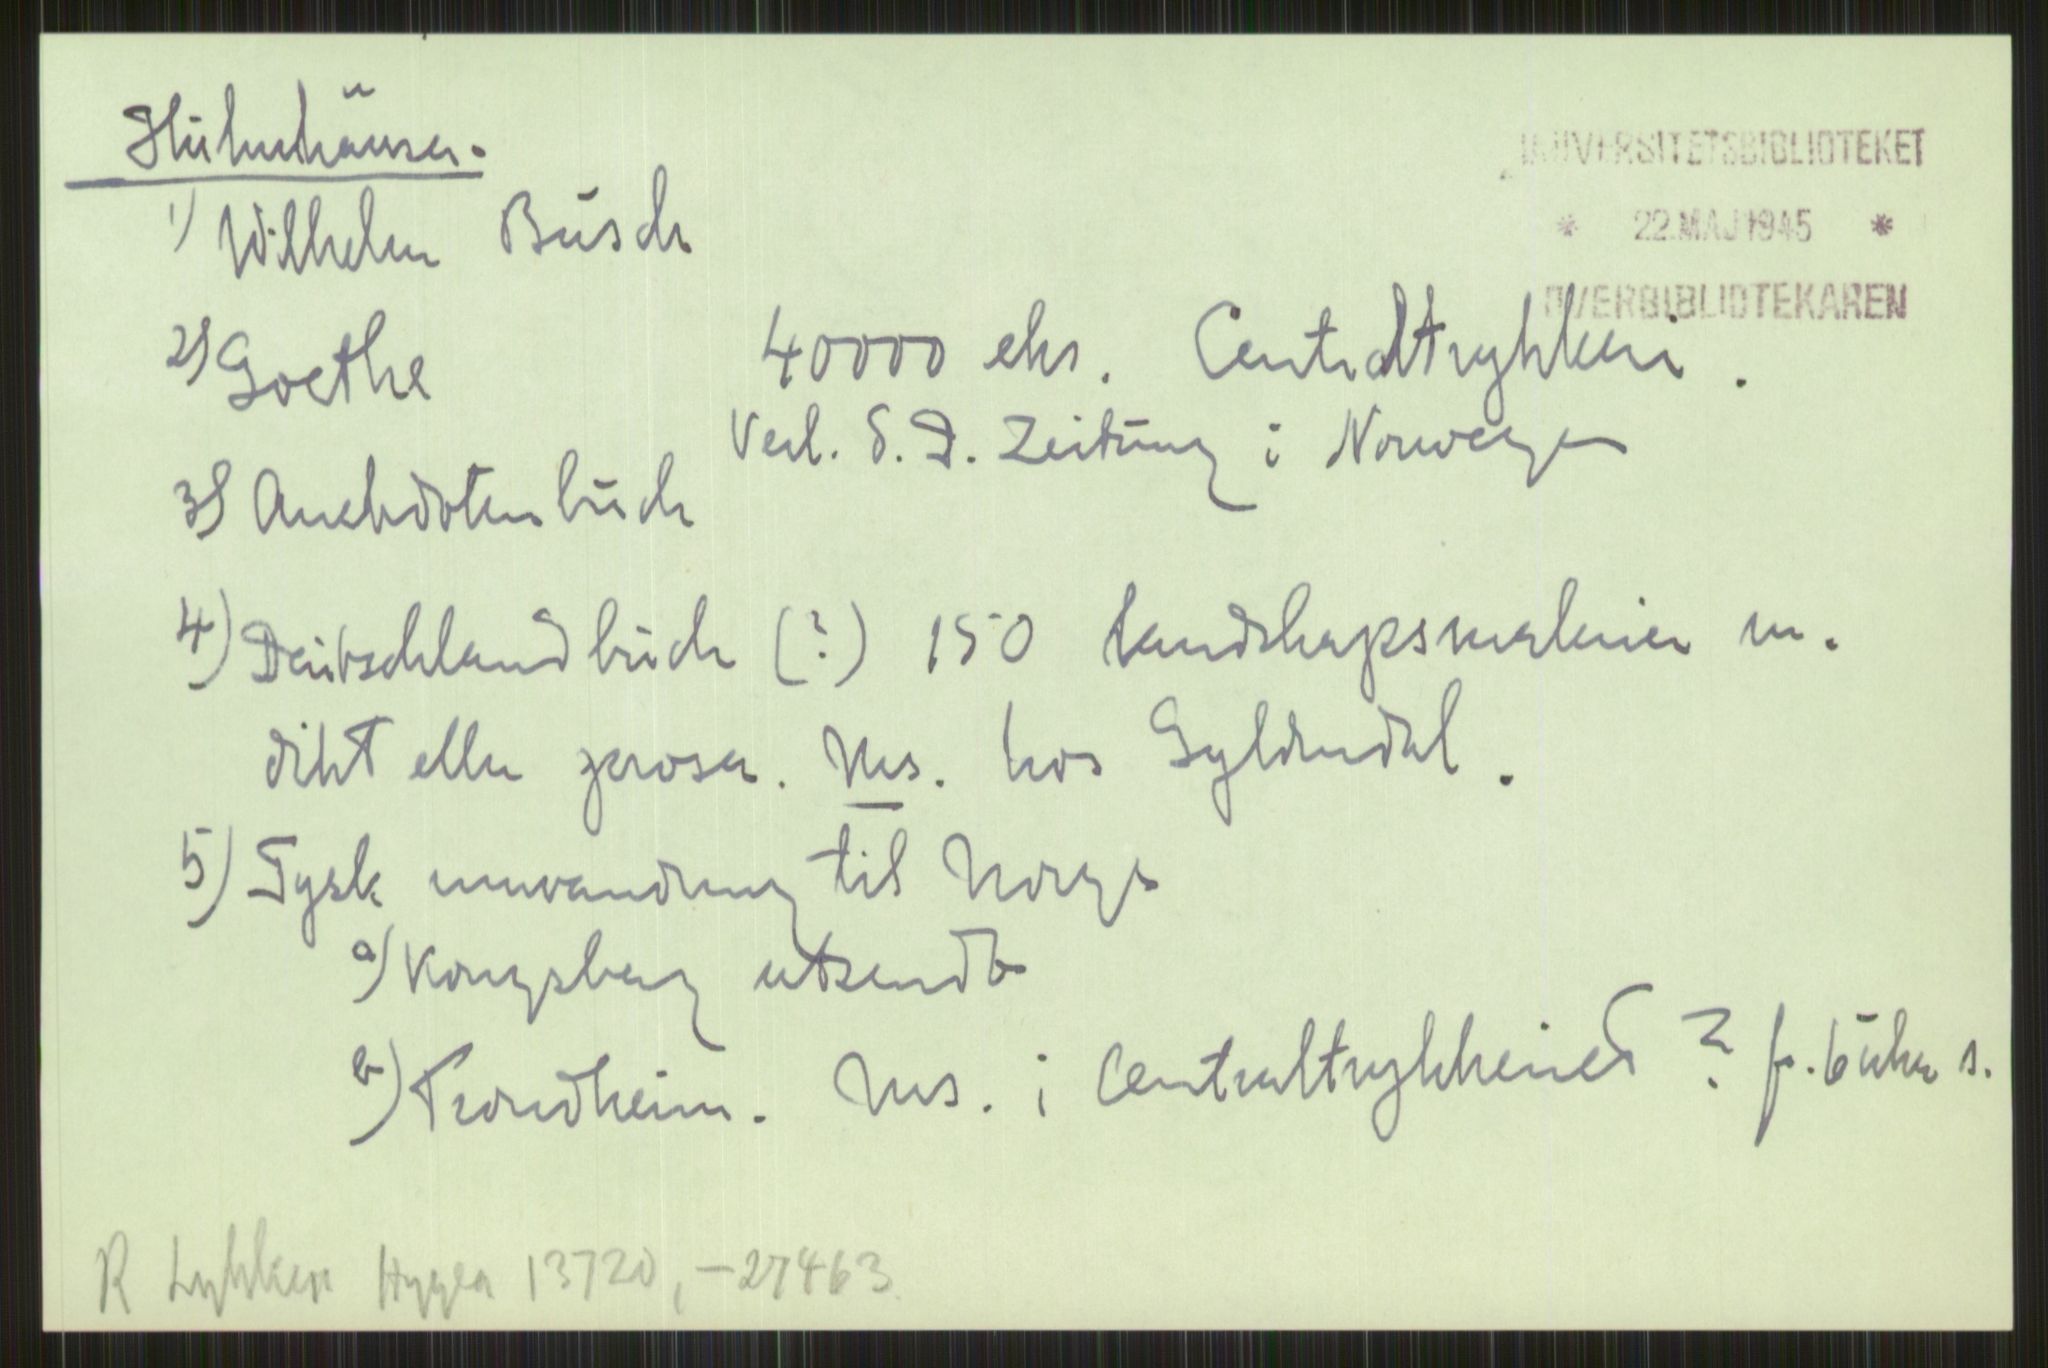 Hühnhäuser.
UNIVERSITETSBIBLIOTEKET
* 22.MAJ 1945 *
OVERBIBLIOTEKAREN
1) Wilhelm Busch
2) Goethe 40000 eks. Centraltrykkeri.
Verl. d. D. Zeitung i Norwegen
3) Anekdotenbuch
4) Deutschlandbuch (?) 150 landskapsmalerier m.
dikt eller prosa. Ms. hos Gyldendal.
5) Tysk innvandring til Norge
a) Kongsberg utsendt
b) Trondheim. Ms. i Centraltrykkeriet ? f.
R Lykken Hygea 13720, -27463